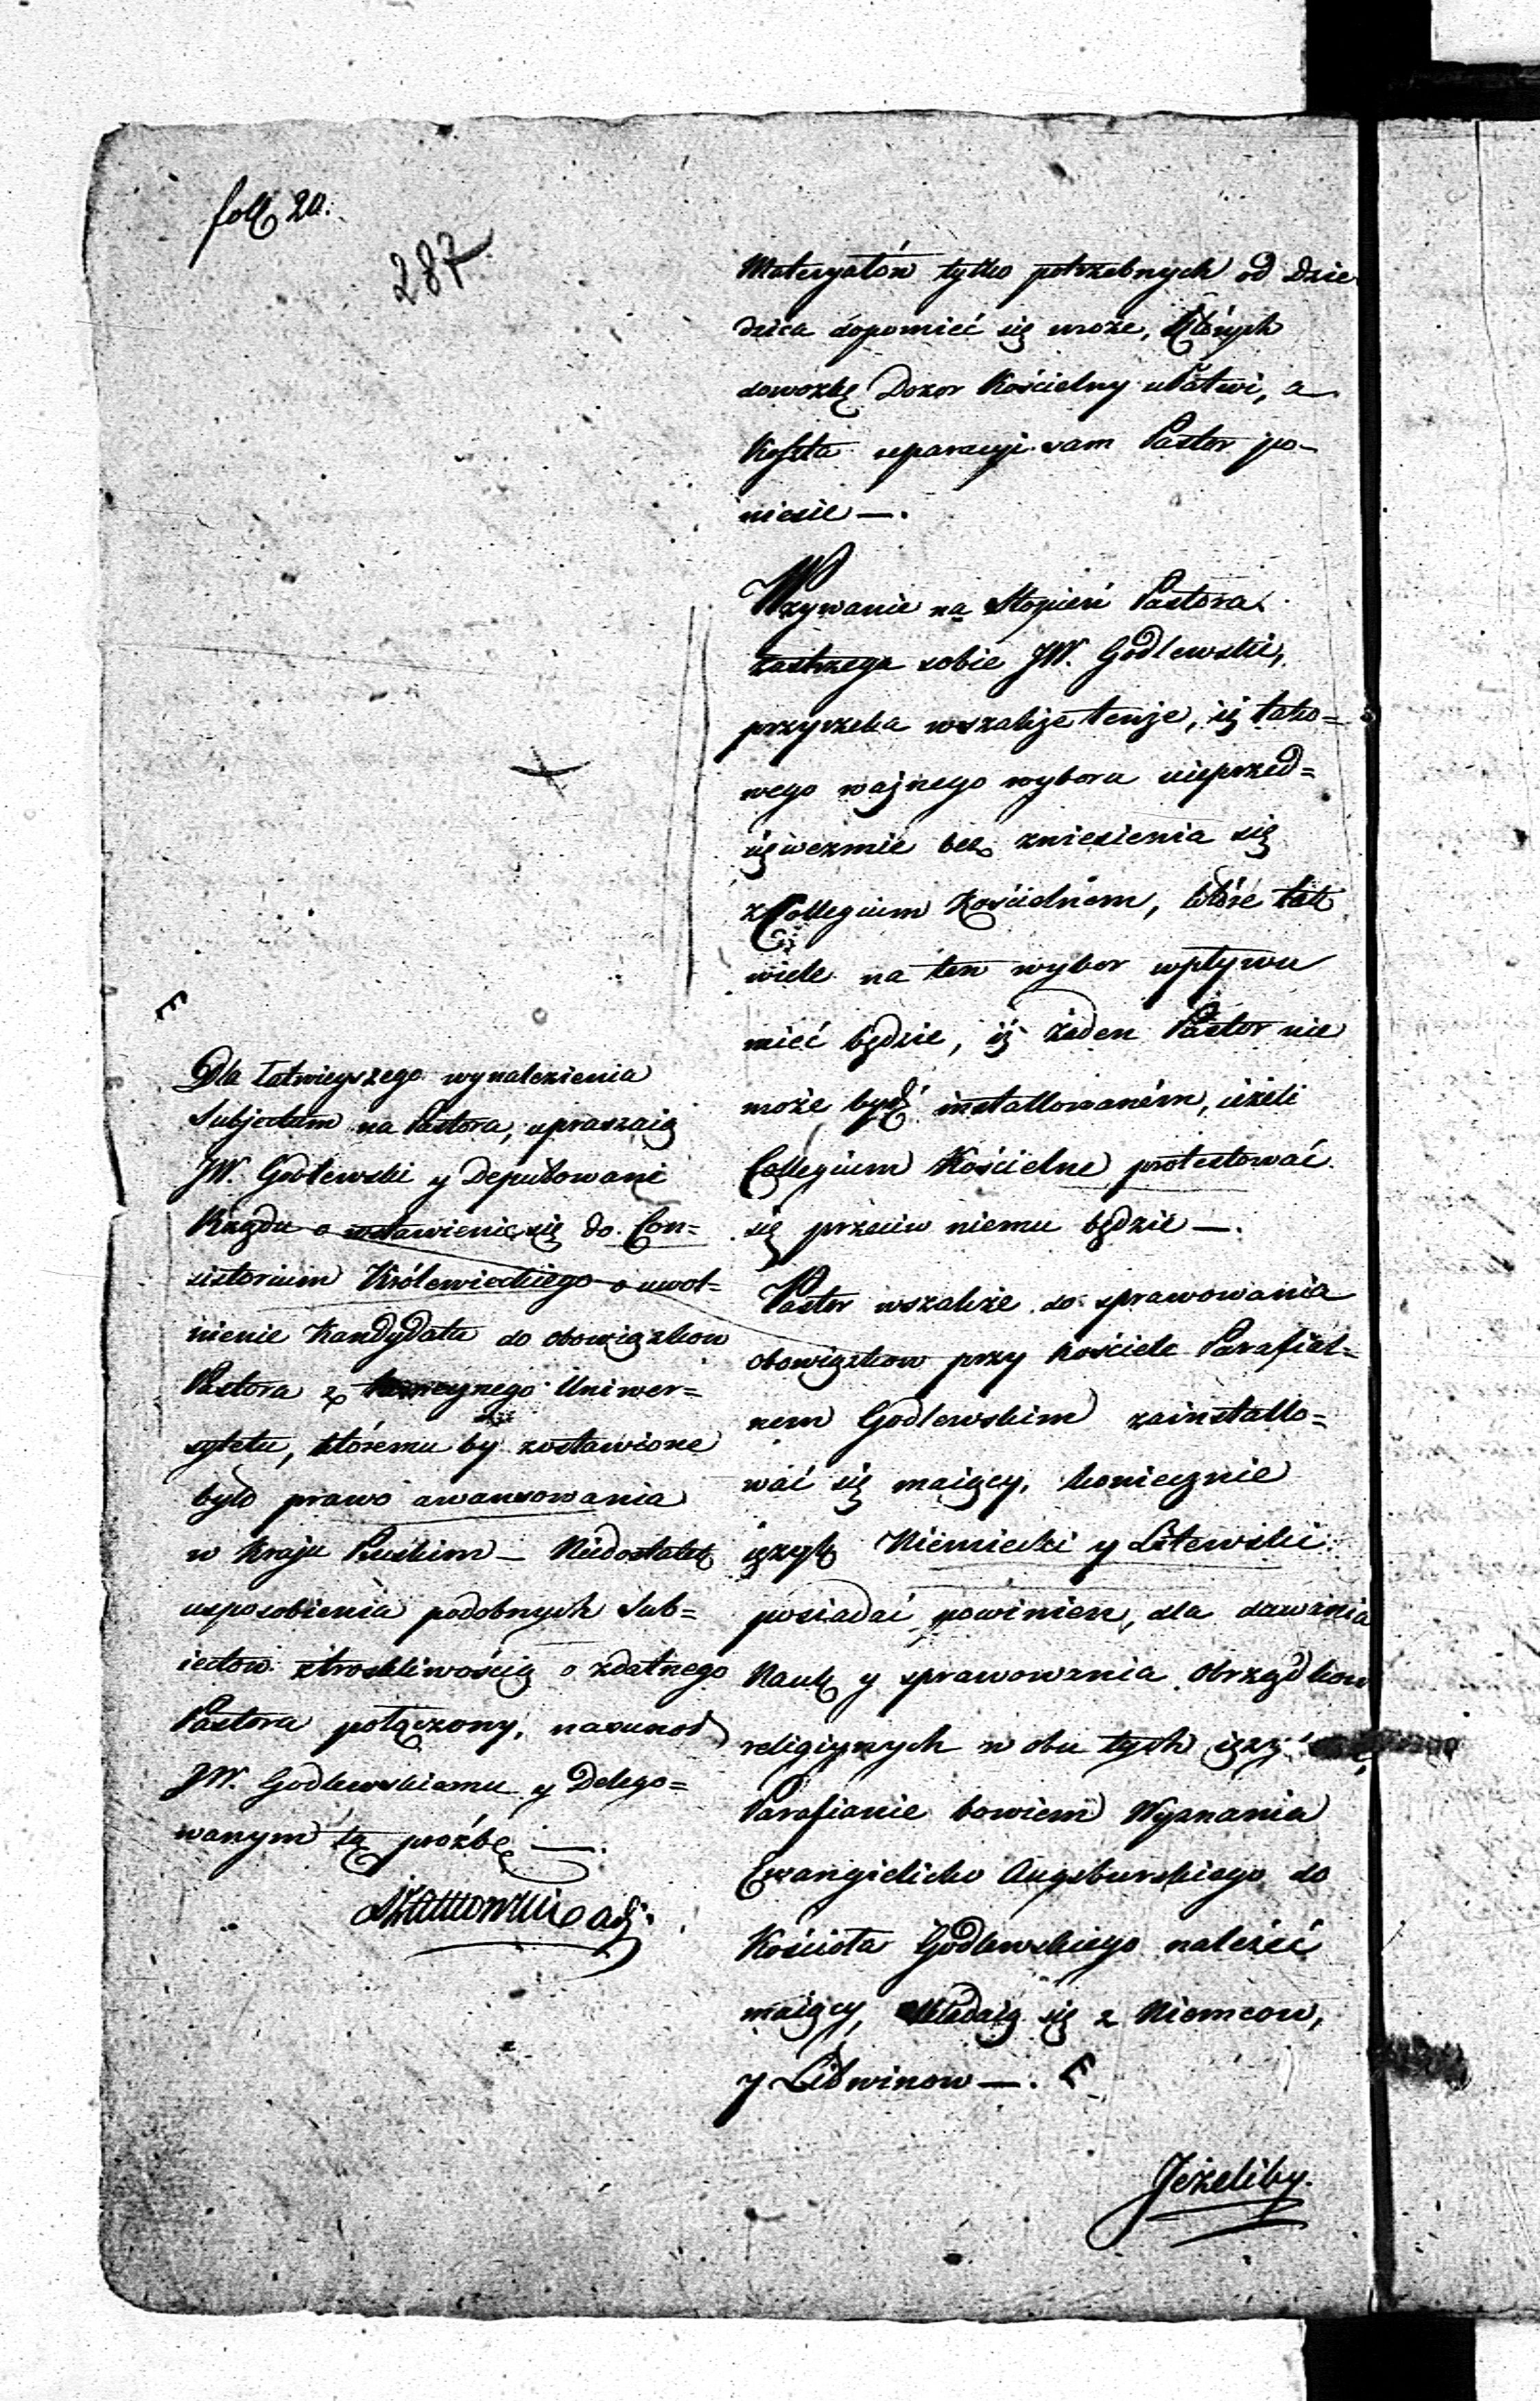 foll 20.
287
Materyałów tylko potrzebnych od Dzie
dzica dopomieć się może, których
dowozkę Dozor Kościelny ułatwi, a
Koszta reparacyi sam Pastor po-
niesie —.
Wzywanie na Stopień Pastora
zastrzega sobie JW. Godlewski,
przyrzeka wszakże tenże, iż tako=
wego ważnego wyboru nieprzed=
ięweźmie bez zniesienia się
z Collegium Kościelnem, które tak
wiele na ten wybor wpływu
mieć będzie, iż żaden Pastor nie
może bydź installowaném, ieżeli
Collegium Kościelne protestować
się przeciw niemu będzie —.
Pastor wszakże do sprawowania
obowiązkow przy kościele Parafial=
nem Godlewskim zainstallo=
wać się maiący, koniecznie
ięzyk Niemiecki y Litewski
posiadać powinien, dla dawania
Nauk y sprawowania Obrządkow
religiynych w obu tych ięzy
Parafianie bowiem Wyznania
Ewangielicko Augsburskiego do
Kościoła Godlewskiego należeć
maiący, składaią się z Niemcow,
y Litwinow —. E
E
Dla łatwieyszego wynalezienia
Subjectum na Pastora, upraszaią
JW. Godlewski y Deputowani
Rządu o wstawienie się do Con=
sistorium Królewieckiego o uwol=
nienie Kandydata do obowiązkow
Pastora z Uniwer=
sytetu, któremu by zostawione
było prawo awansowania
w Kraju Pruskim — Niedostatek
usposobienia podobnych Sub=
iectow z troskliwością o zdatnego
Pastora połączony, nasunoł
JW. Godlewskiemu y Delego=
wanym tę proźbę —.
Jeżeliby.